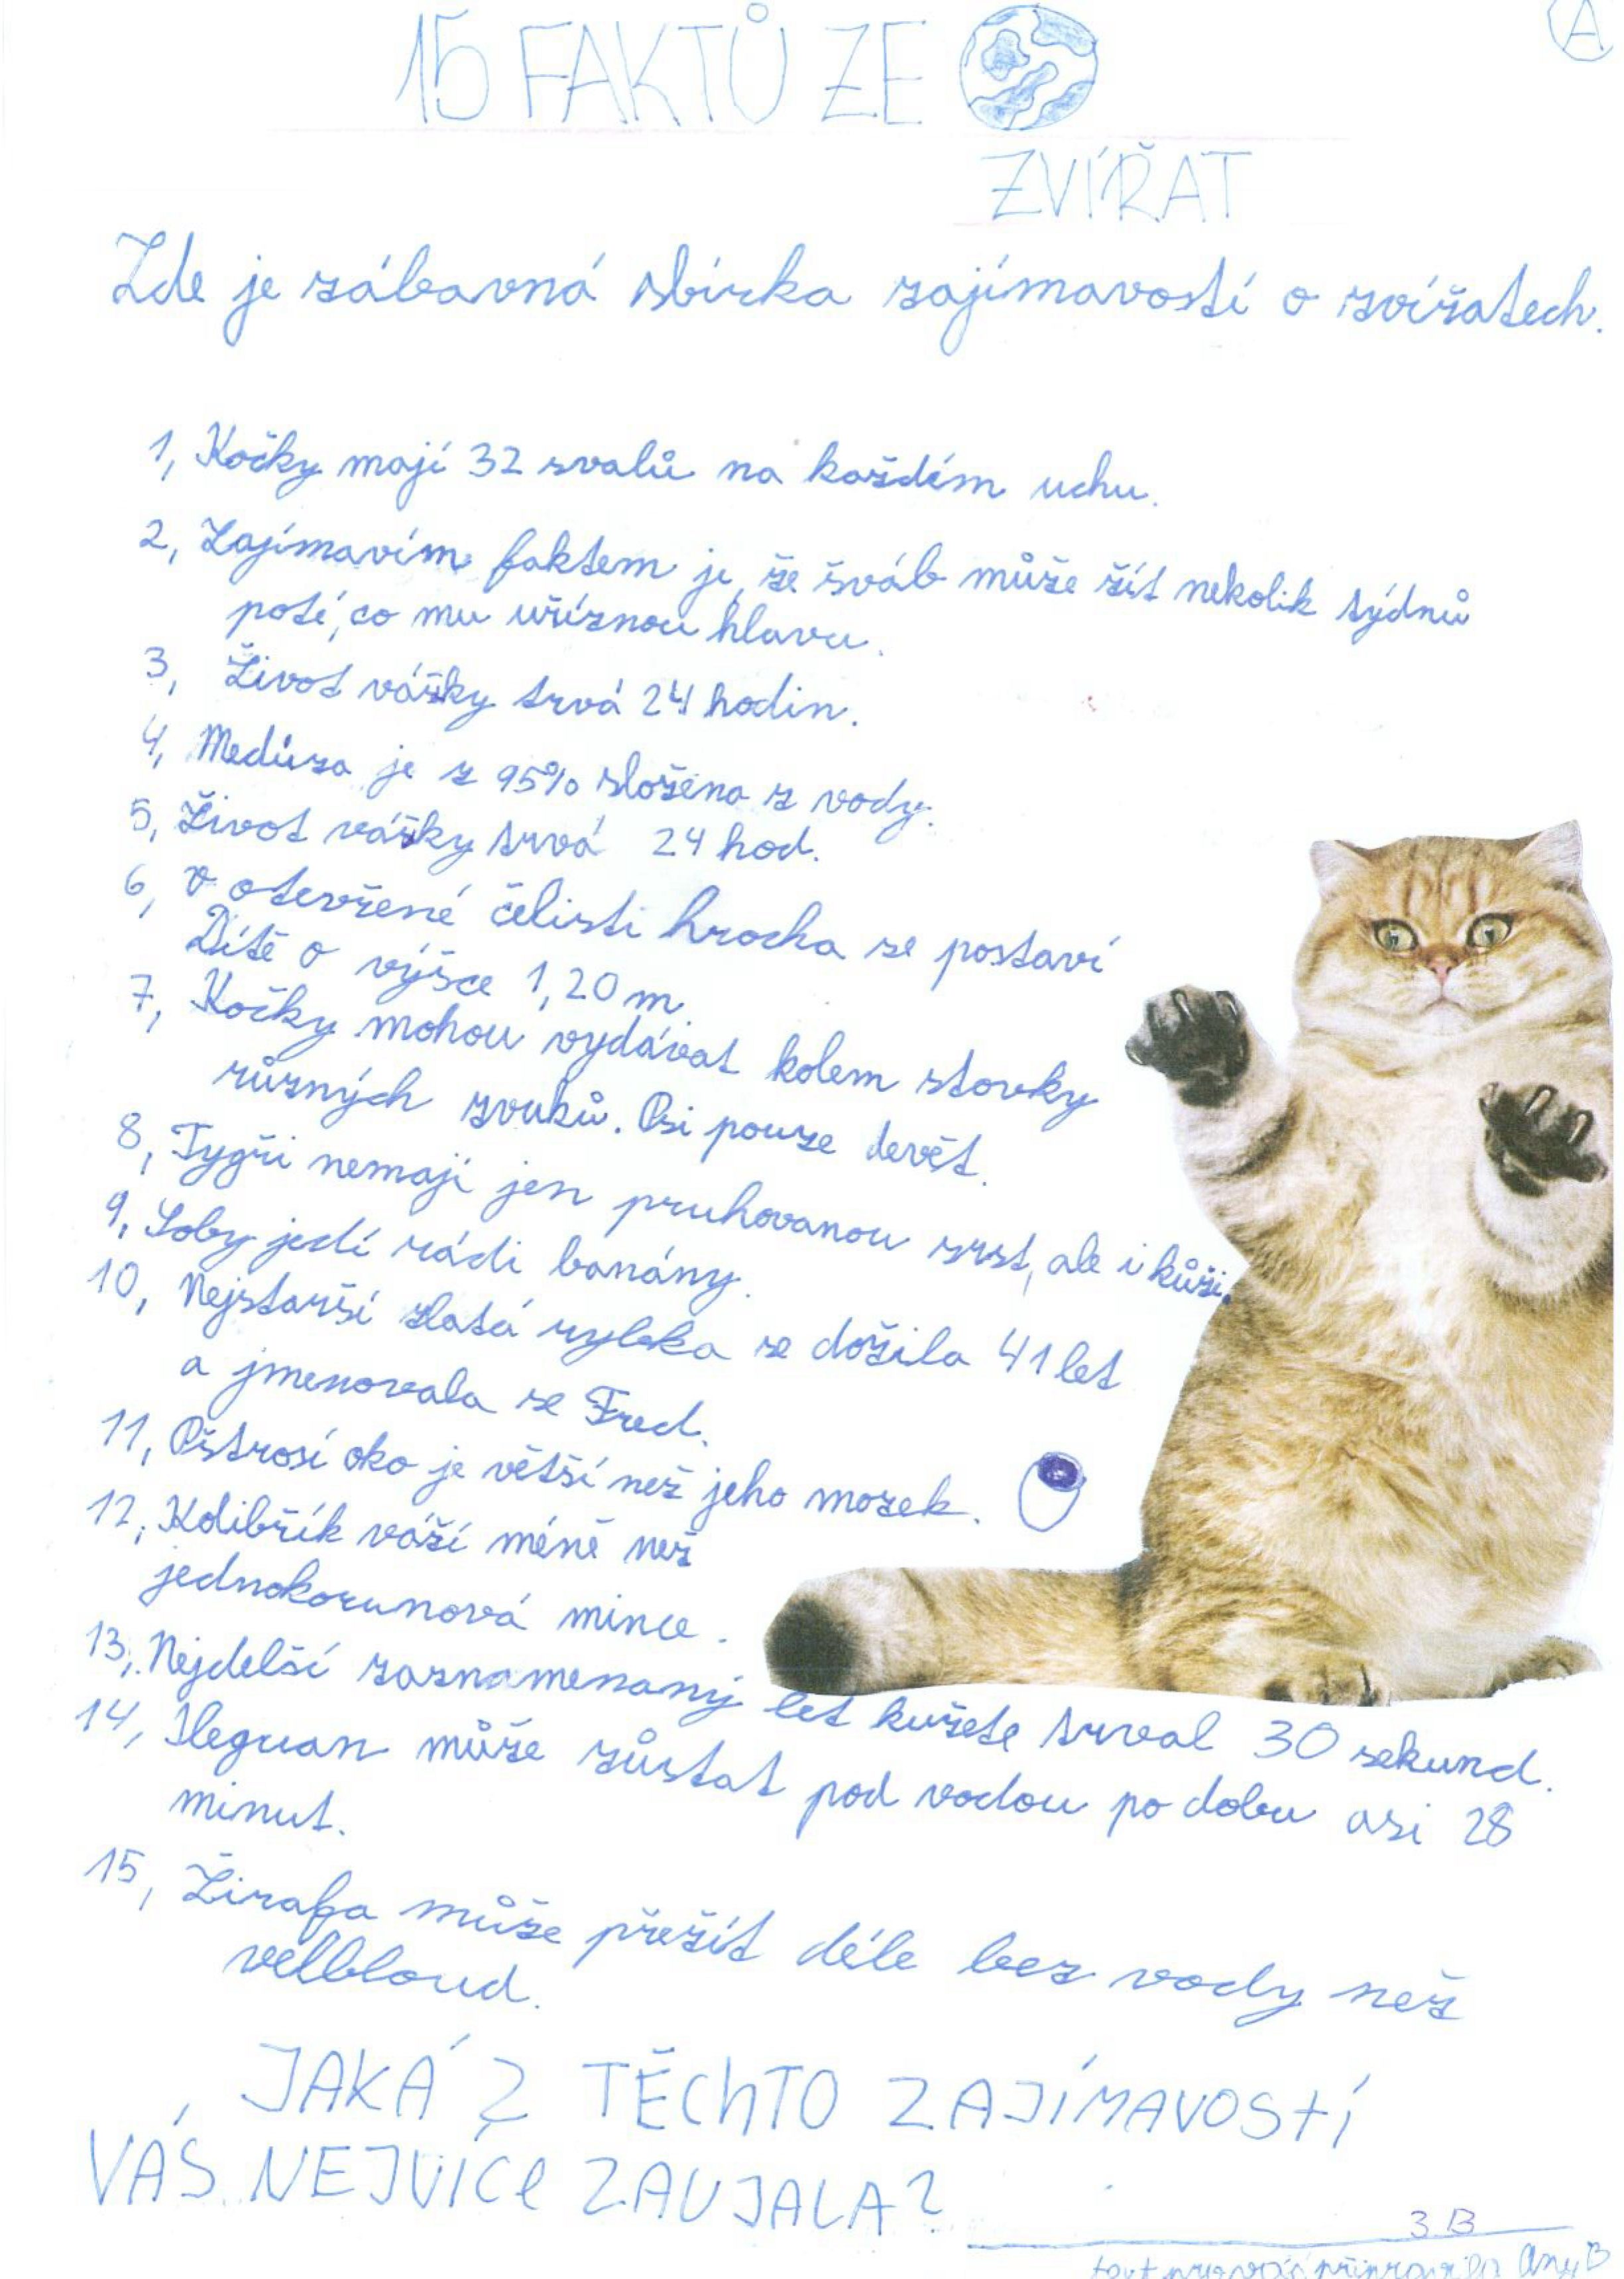 A
15 FAKTŮ ZE
ZVÍŘAT
Zde je zábavná sbírka zajímavostí o zvířatech.
1, Kočky mají 32 svalů na každém uchu.
2, Zajímavím faktem je, že šváb může žít nekolik týdnů
poté, co mu uříznou hlavu.
3, Život vážky trvá 24 hodin.
4, Medúza je z 95% složena z vody.
5, Život vážky trvá 24 hod.
6, V otevřené čelisti hrocha se postaví
Dítě o výšce 1,20 m
7, Kočky mohou vydávat kolem stovky
různých zvuků. Psi pouze devět.
8, Tygři nemají jen pruhovanou srst, ale i kůži.
9, Soby jedí rádi banány.
10, Nejstarší zlatá rybka se dožila 41 let
a jmenovala se Fred.
11, Pštrosí oko je větší než jeho mozek.
12, Kolibřík váží méně než
jednokorunová mince.
13, Nejdelší zaznamenaný let kuřete trval 30 sekund.
14, Ileguan může zůstat pod vodou po dobu asi 28
minut.
15, Žirafa může přežít déle bez vody než
velbloud.
JAKÁ Z TĚChTO ZAJÍMAVOSTÍ
VÁS NEJVÍCE ZAUJALA?
3.B